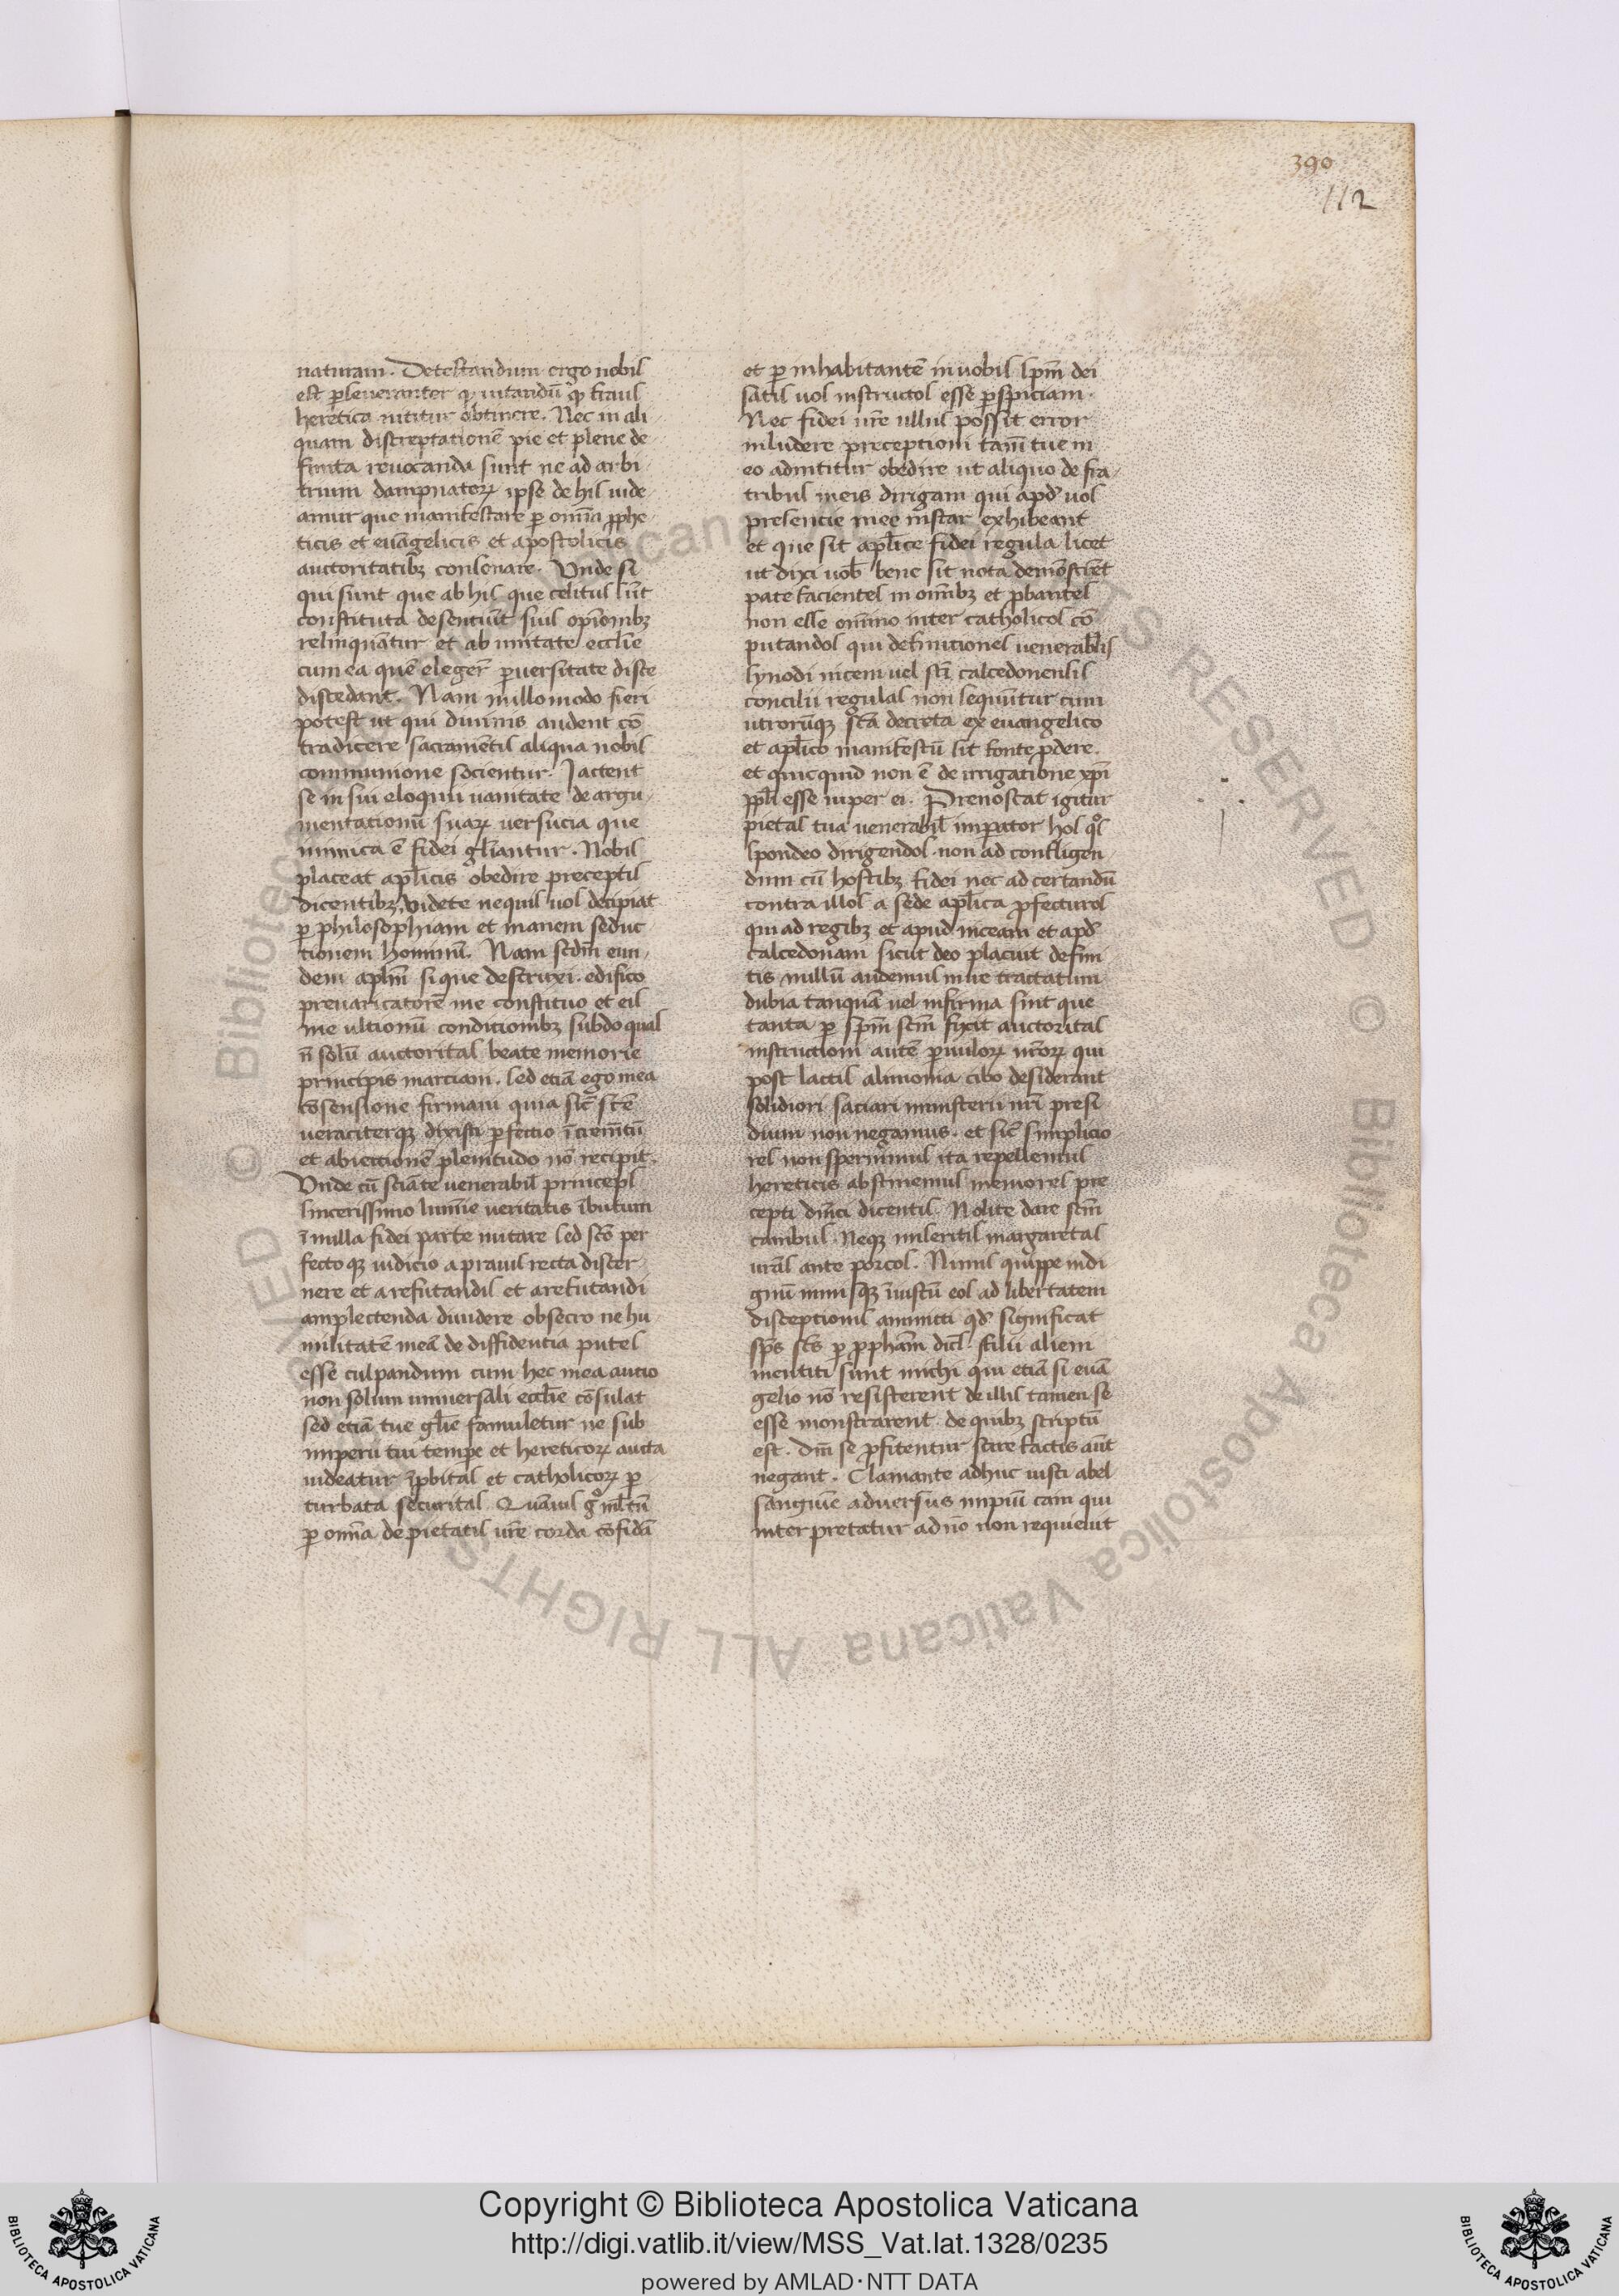 390
112
naturam. Detestandum ergo nobis
est perseueranter et uitandũ quod fraus
heretica nititur obtinere. Nec in ali
quam disceptationẽ pie et plene de
finita reuocanda sunt ne ad arbi
trium dampnatoꝝ ipse de his uide
amur que manifestare ꝑ om̃ia ꝓphe
ticis et euãgelicis et apostolicis
auctoritatibꝫ consonare. Unde si
qui sunt que ab his que celitus sũt
constituta desentiũt suis opiõnibꝫ
relinquãtur et ab unitate eccl̃ie
cum ea quẽ eleger̃ ꝑuersitate disce
discedant. Nam nullomodo fieri
potest ut qui diuinis audent cõ
tradicere sacramẽtis aliqua nobis
communione socientur. Jactent
se in sui eloquii uanitate de argu
mentationũ suaꝝ uersucia que
inimica ẽ fidei gl̃iantur. Nobis
placeat apl̃icis obedire preceptis
dicentibꝫ. videte nequis uos decipiat
ꝑ philosophiam et inanem seduc
tionem hominũ. Nam scdm̃ eun
dem apl̃m si que destruxi. edifico
preuaricatorẽ me constituo et eis
me ultionũ conditionibꝫ subdo quas
ñ solũ auctoritas beate memorie
principis marciani. sed etiã ego mea
cõsensione firmaui quia sic̃ scẽ
ueraciterqꝫ dixisti ꝑfectio ĩcrem̃tũ
et abiectionẽ plenitudo nõ recipit.
Unde cũ sciã te uenerabil̃ princeps
sincerissimo lumĩe ueritatis ĩbutum
ĩ nulla fidei parte nutare sed sc̃o per
fecto qꝫ iudicio a prauis recta discer
nere et a refutandis et a refutandi
amplectenda diuidere obsecro ne hu
militatẽ meã de diffidentia putes
esse culpandum cum hec mea autio
non solum uniuersali eccl̃ie cõsulat
sed etiã tue gl̃ie famuletur ne sub
imperii tui tempe et hereticoꝝ aucta
uideatur ĩꝓbitas et catholicoꝝ ꝑ
turbata securitas. Quãuis gͦ ml̃tũ
ꝑ om̃ia de pietatis ur̃e corda cõfidã
et ꝑ inhabitantẽ in uobis sp̃m dei
satis uos instructos esse ꝑspiciam.
Nec fidei ur̃e ullus possit error
inludere preceptioni tam̃ tue in
eo adnititur obedire ut aliquo de fra
tribus meis dirigam qui apd̃ uos
presencie mee instar exhibeant
et que sit apl̃ice fidei regula licet
ut dixi uob̃ bene sit nota demõstrẽt
pate facientes in om̃ibꝫ et ꝓbantes
non esse om̃ino inter catholicos cõ
putandos qui definitiones uenerabl̃is
synodi niceni uel sc̃i calcedonensis
concilii regulas non sequũtur cum
utrorũqꝫ sc̃a decreta ex euangelico
et apl̃ico manifestũ sit fonte ꝓdere.
et quicquid non ẽ de irrigatione xp̃i
ꝑpl̃i esse iuper ei. Prenoscat igitur
pietas tua uenerabil̃ imꝑator hos qͦs
spondeo dirigendos non ad confligen
dum cũ hostibꝫ fidei nec ad certandũ
contra illos a sede apl̃ica ꝓfecturos
qui ad regibꝫ et apud niceam et apd̃
calcedonam sicut deo placuit defini
tis nullũ audemus inire tractatum
dubia tanquã uel infirma sint que
tanta ꝑ sp̃m sc̃m fixit auctoritas
instructioni autẽ ꝑuuloꝝ nr̃oꝝ qui
post lactis alimonia cibo desiderant
solidiori saciari ministerii nr̃i presi
dium non negamus. et sic̃ simplicio
res non spernimus ita repellemus
hereticis abstinemus memores pre
cepti dñici dicentis. Nolite dare sc̃m
canibus. Neqꝫ miseritis margaretas
ur̃as ante porcos. Nimis quippe indi
gnũ nimisqꝫ ĩiustũ eos ad libertatem
disceptionis ammitti qd̃ significat
sp̃s sc̃s ꝑ ꝓpham̃ dic̃s. filii alieni
mentiti sunt michi qui etiã si euã
gelio nõ resisterent de illis tamen se
esse monstrarent de quibꝫ scriptũ
est. Dm̃ se ꝓfitentur scire factis aũt
negant. Clamante adhuc iusti abel
sanguĩe aduersus impiũ cain qui
interpretatur adño non requieuit
Copyright © Biblioteca Apostolica Vaticana
http://digi.vatlib.it/view/MSS_Vat.lat.1328/0235
powered by AMLAD·NTT DATA